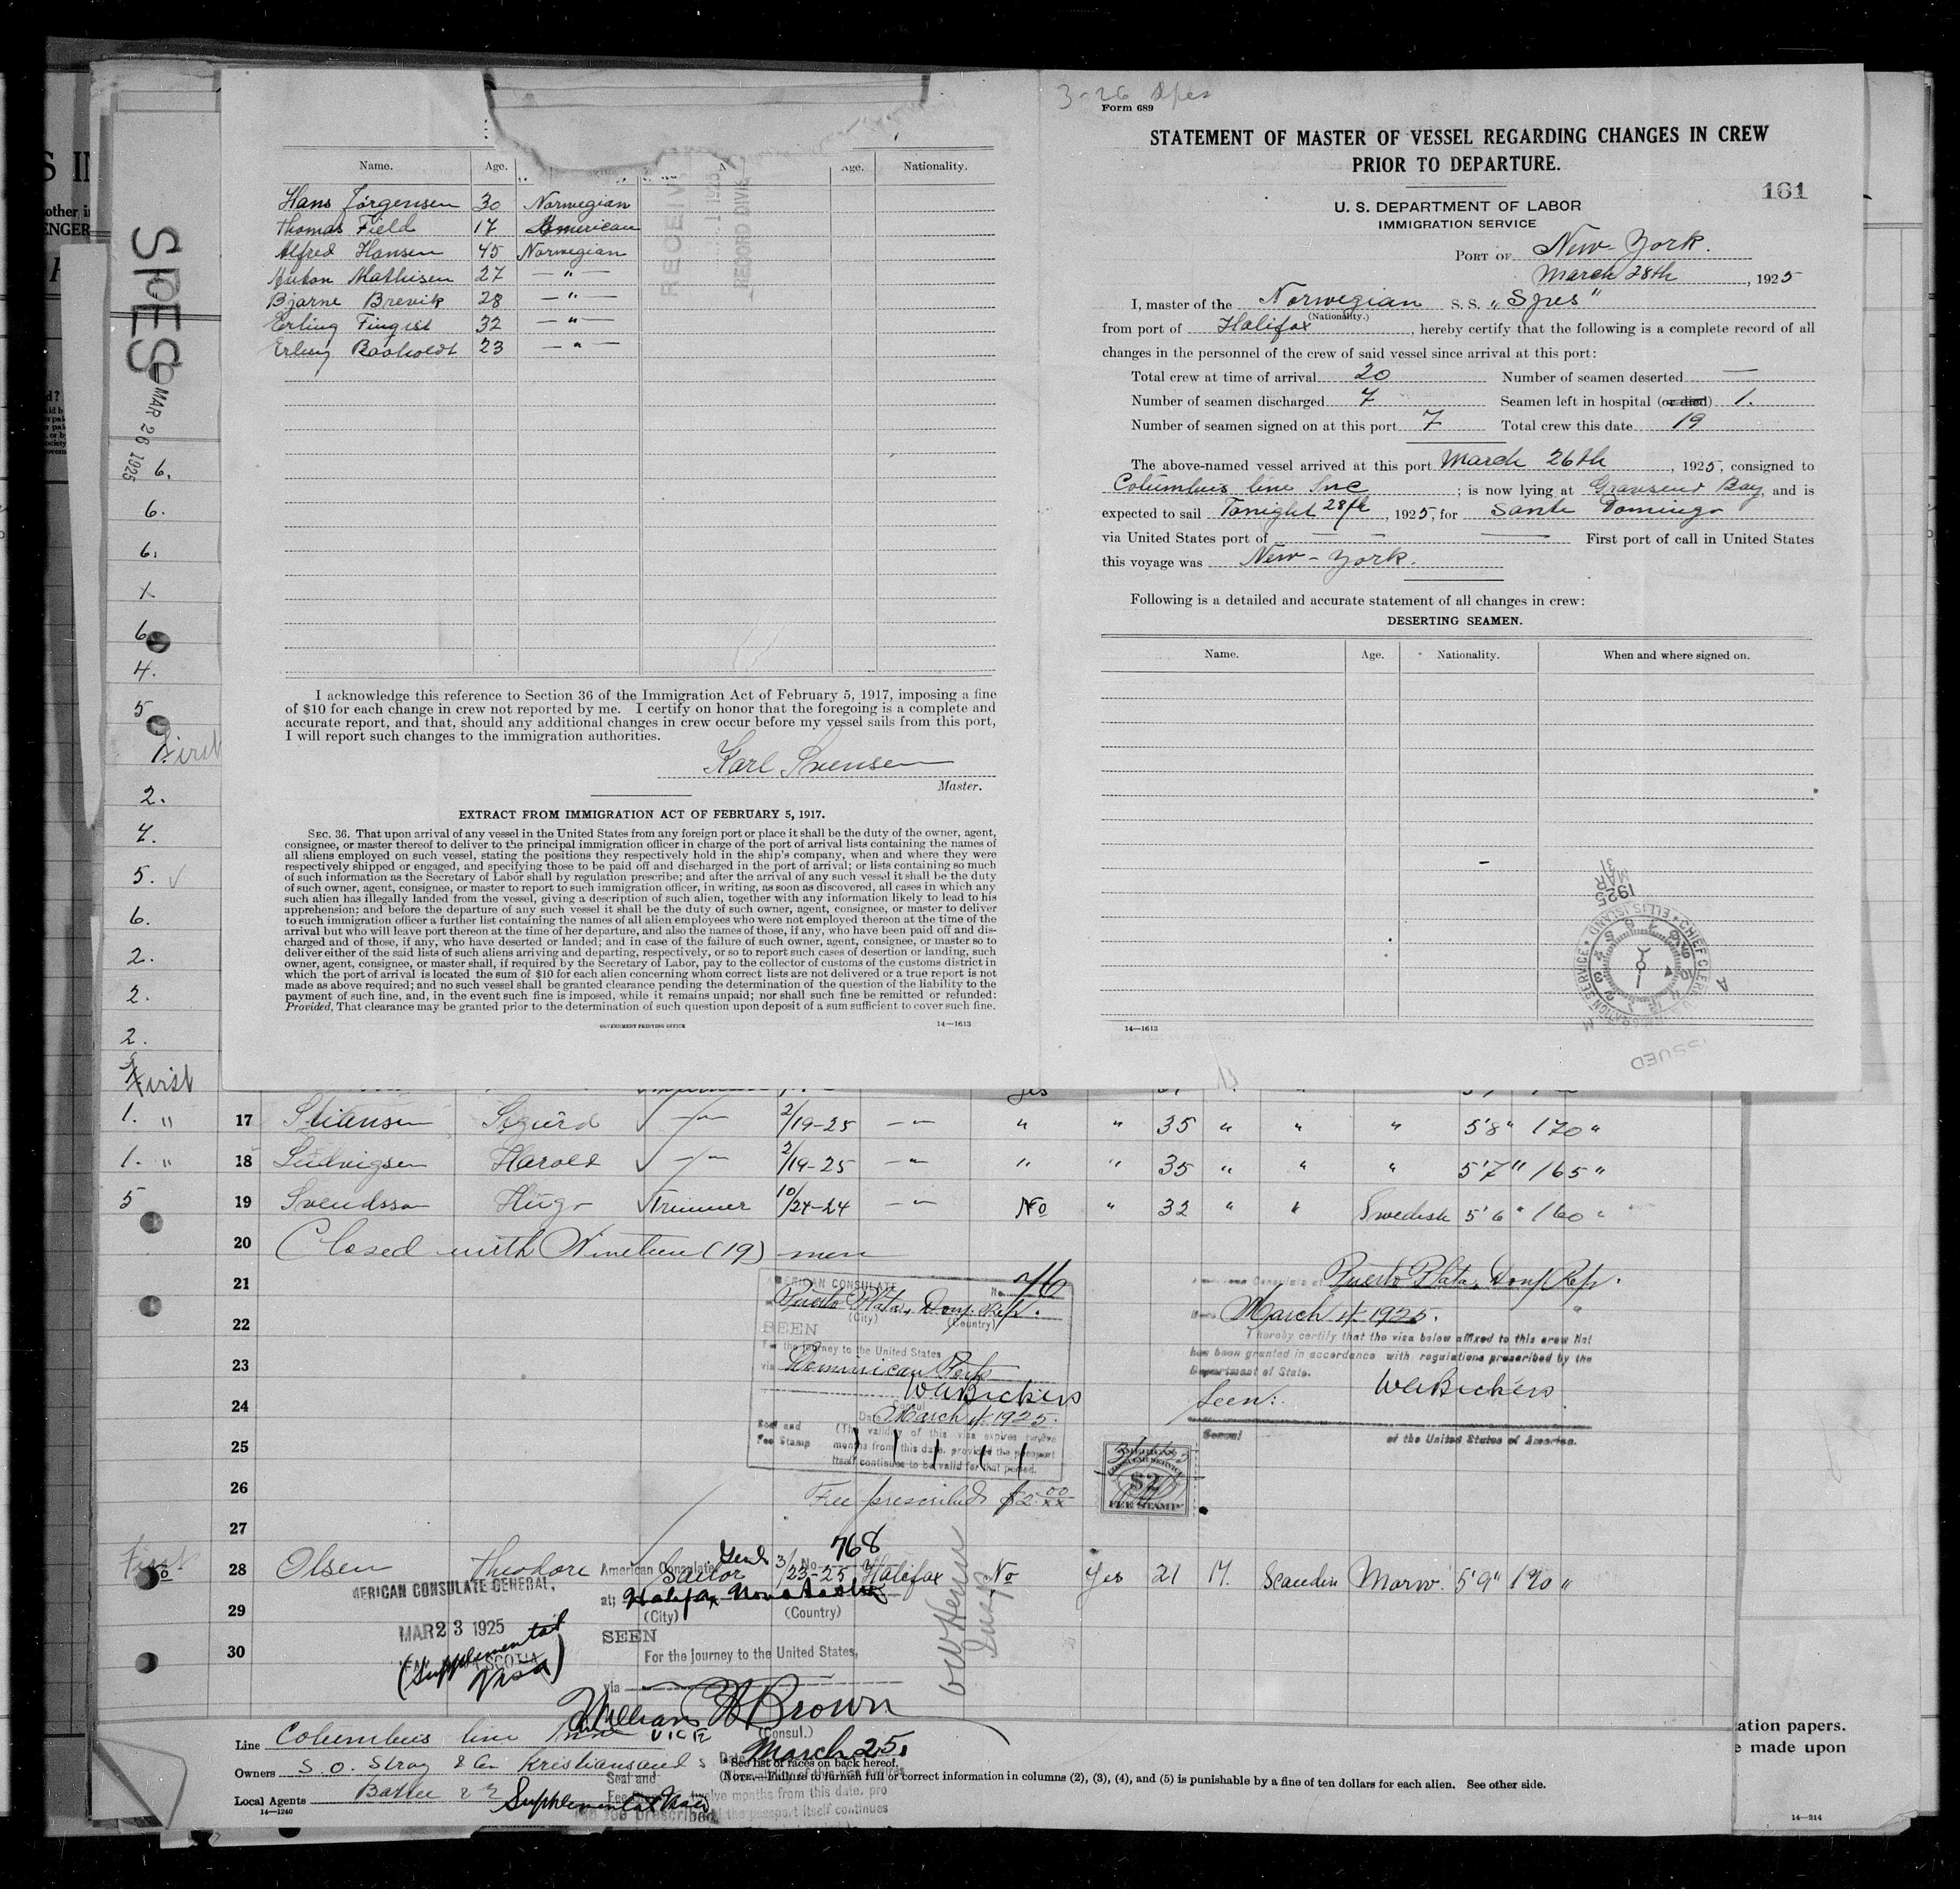 3-26 Spes
Form 689
STATEMENT OF MASTER OF VESSEL REGARDING CHANGES IN CREW
PRIOR TO DEPARTURE.
161
U. S. DEPARTMENT OF LABOR
IMMIGRATION SERVICE
PORT OF New-York.
March 28th, 1925
I, master of the Norwegian S. S. "Spes"
(Nationality.)
from port of Halifax, hereby certify that the following is a complete record of all
changes in the personnel of the crew of said vessel since arrival at this port:
Total crew at time of arrival 20 Number of seamen deserted —
Number of seamen discharged 7 Seamen left in hospital (or died) 1.
Number of seamen signed on at this port 7 Total crew this date 19
The above-named vessel arrived at this port March 26th, 1925, consigned to
Columbus line Inc; is now lying at Gravsend Bay, and is
expected to sail Tonight 28th, 1925, for Sante Domingo
via United States port of — — — First port of call in United States
this voyage was New-York.
Following is a detailed and accurate statement of all changes in crew:
DESERTING SEAMEN.
Name. Age. Nationality. When and where signed on.
1925
MAR
31
ISSUED
14—1613
Name. Age. Age. Nationality.
Hans Jörgensen 30 Norwegian
Thomas Field 17 American
Alfred Hansen 45 Norwegian
Anton Mathisen 27 — " —
Bjarne Brevik 28 — " —
Erling Finqvist 32 — " —
Erling Booholdt 23 — " —
I acknowledge this reference to Section 36 of the Immigration Act of February 5, 1917, imposing a fine
of $10 for each change in crew not reported by me. I certify on honor that the foregoing is a complete and
accurate report, and that, should any additional changes in crew occur before my vessel sails from this port,
I will report such changes to the immigration authorities.
Karl Svensen
Master.
EXTRACT FROM IMMIGRATION ACT OF FEBRUARY 5, 1917.
SEC. 36. That upon arrival of any vessel in the United States from any foreign port or place it shall be the duty of the owner, agent,
consignee, or master thereof to deliver to the principal immigration officer in charge of the port of arrival lists containing the names of
all aliens employed on such vessel, stating the positions they respectively hold in the ship's company, when and where they were
respectively shipped or engaged, and specifying those to be paid off and discharged in the port of arrival; or lists containing so much
of such information as the Secretary of Labor shall by regulation prescribe; and after the arrival of any such vessel it shall be the duty
of such owner, agent, consignee, or master to report to such immigration officer, in writing, as soon as discovered, all cases in which any
such alien has illegally landed from the vessel, giving a description of such alien, together with any information likely to lead to his
apprehension; and before the departure of any such vessel it shall be the duty of such owner, agent, consignee, or master to deliver
to such immigration officer a further list containing the names of all alien employees who were not employed thereon at the time of the
arrival but who will leave port thereon at the time of her departure, and also the names of those, if any, who have been paid off and dis-
charged and of those, if any, who have deserted or landed; and in case of the failure of such owner, agent, consignee, or master so to
deliver either of the said lists of such aliens arriving and departing, respectively, or so to report such cases of desertion or landing, such
owner, agent, consignee, or master shall, if required by the Secretary of Labor, pay to the collector of customs of the customs district in
which the port of arrival is located the sum of $10 for each alien concerning whom correct lists are not delivered or a true report is not
made as above required; and no such vessel shall be granted clearance pending the determination of the question of the liability to the
payment of such fine, and, in the event such fine is imposed, while it remains unpaid; nor shall such fine be remitted or refunded:
Provided, That clearance may be granted prior to the determination of such question upon deposit of a sum sufficient to cover such fine.
GOVERNMENT PRINTING OFFICE 14—1613
SPES
MAR 26 1925
6.
6.
6.
1.
6
4.
5
First
2.
7.
5.
6.
2.
2.
2.
First
1. " 17 Stiansen Sigurd 2/19-25 35 " " " 5'8" 170 "
1. " 18 Ludvigsen Harold 2/19-25 35 " " " 5'7" 165 "
5 19 Svendsson Hugo Trimmer 10/24-24 No " 32 " " Swedish 5'6" 160 "
20 Closed with Nineteen (19) men
21
22
23
24
25
26
27
AMERICAN CONSULATE No. 76
Puerto Plata, Dom. Rep.
(City) (Country)
SEEN
For the journey to the United States
via Dominican Rep.
W A Bickers
Consul
Date March 4/1925.
Seal and Fee Stamp
(The validity of this visa expires twelve
months from this date, provided the passport
itself continues to be valid for that period.
Fee prescribed $2.00
American Consulate at Puerto Plata, Dom. Rep.
Date March 4/1925.
I hereby certify that the visa below affixed to this crew list
has been granted in accordance with regulations prescribed by the
Department of State.
Seen: W A Bickers
Consul of the United States of America.
AMERICAN
CONSULAR SERVICE
$2
FEE STAMP
First 28 Olsen Theodore Sailor 3/23-25 Halifax No Yes 21 M. Scandin Norw. 5'9" 170 "
29
30
AMERICAN CONSULATE GENERAL,
MAR 23 1925
(Supplemental Visa)
American Consulate Genl No. 768
at; Halifax Nova Scotia
(City) (Country)
SEEN
For the journey to the United States,
via
William W Brown
VICE (Consul.)
Date March 25,
Insp
Line Columbus line Inc
Owners S. O. Stray & Co. Kristiansand S
Local Agents
Supplemental Visa
No fee prescribed
* See list of races on back hereof.
NOTE.—Failure to furnish full or correct information in columns (2), (3), (4), and (5) is punishable by a fine of ten dollars for each alien. See other side.
14—1240
ation papers.
e made upon
14—214